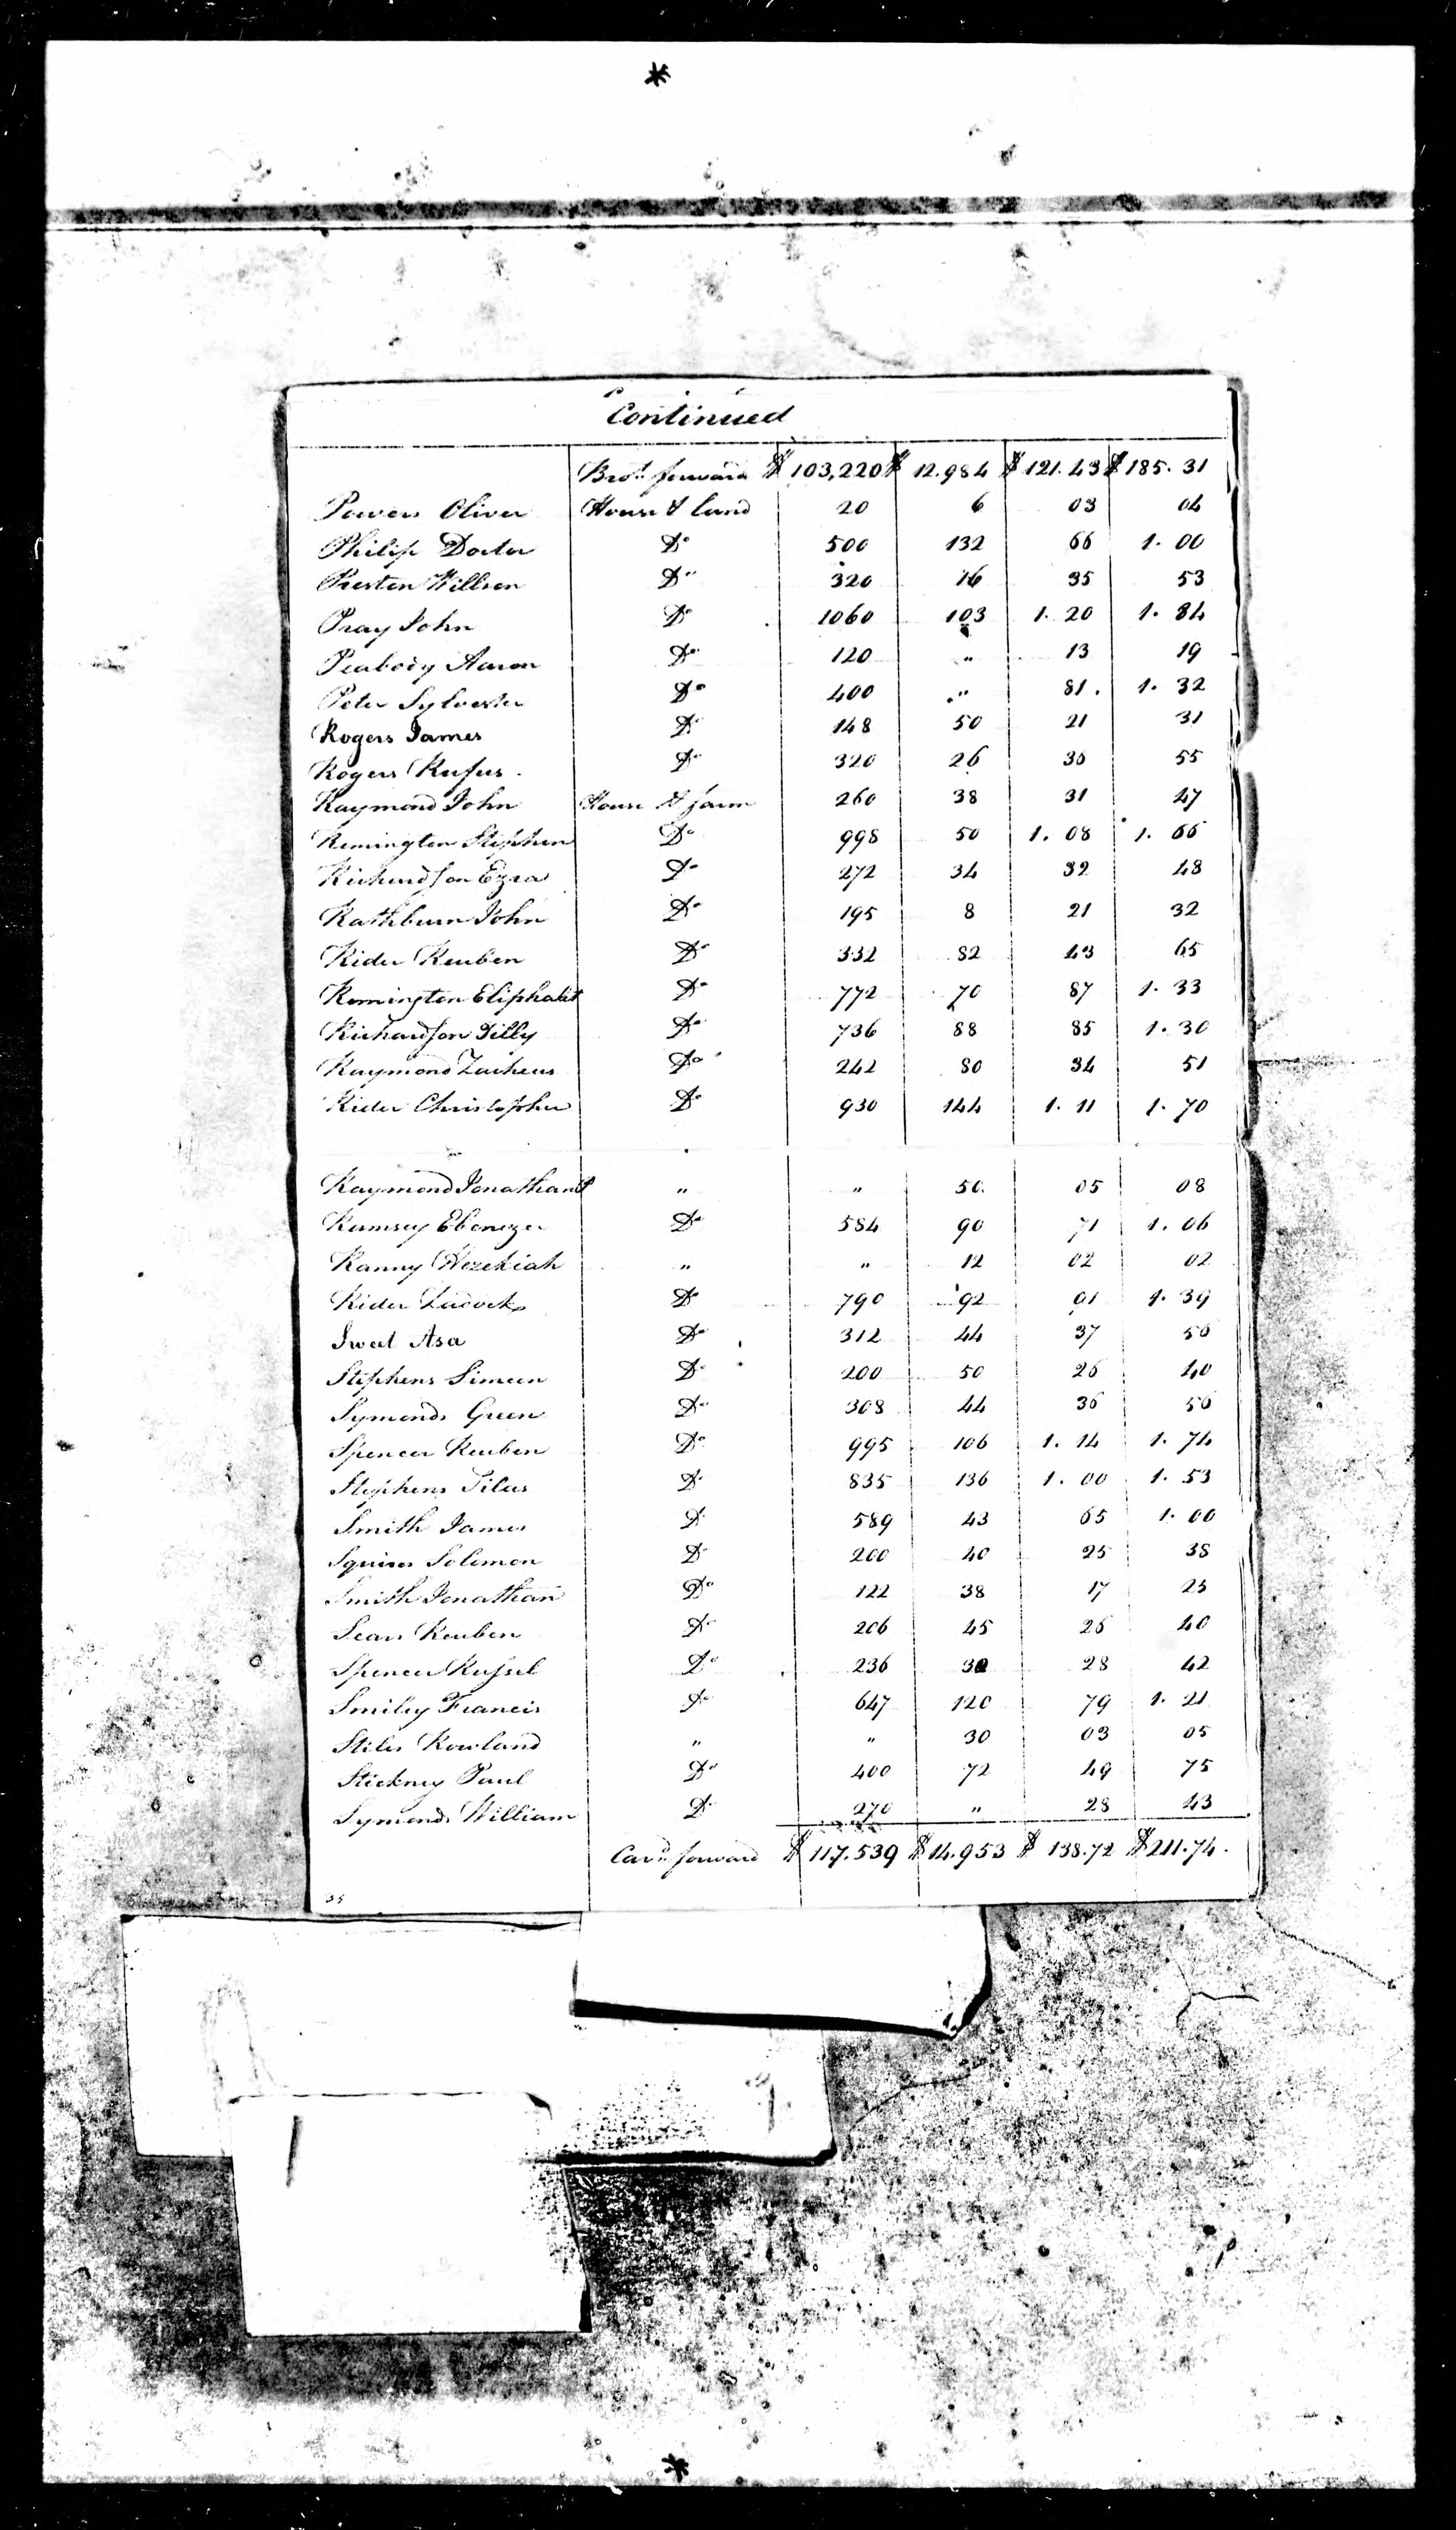 Continued
Bro.t forward $ 103,220 $ 12.984 $ 121.43 $ 185.31
Powers Oliver House & land 20 6 03 04
Philip Doctor Do 500 132 66 1.00
Preston Willson Do 320 16 35 53
Pray John Do 1060 103 1.20 1.84
Peabody Aaron Do 120 " 13 19
Peter Sylvester Do 400 " 81. 1.32
Rogers James Do 148 50 21 31
Rogers Rufus Do 320 26 36 55
Raymond John House & farm 260 38 31 47
Remington Stephen Do 998 50 1.08 1.66
Richardson Ezra Do 272 34 32 48
Rathburn John Do 195 8 21 32
Rider Reuben Do 332 82 43 65
Remington Eliphalet Do 772 70 87 1.33
Richardson Tilly Do 736 88 85 1.30
Raymond Zacheus Do 242 80 34 51
Rider Christopher Do 930 144 1.11 1.70
Raymond Jonathan " " 50 05 08
Ramsey Ebenezer Do 584 90 71 1.06
Ranny Hezekiah " " 12 02 02
Rider Do 790 92 91 1.39
Sweet Asa Do 312 44 37 56
Stephens Simeon Do 200 50 26 40
Symonds Green Do 308 44 36 56
Spencer Reuben Do 995 106 1.14 1.74
Stephens Silas Do 835 136 1.00 1.53
Smith James Do 589 43 65 1.00
Squires Solomon Do 200 40 25 38
Smith Jonathan Do 122 38 17 25
Sears Reuben Do 206 45 26 40
Spencer Russel Do 236 30 28 42
Smiley Francis Do 647 120 79 1.21
Stiles Rowland " " 30 03 05
Stickney Paul Do 400 72 49 75
Symonds William Do 270 " 28 43
Car.d forward $ 117.539 $ 14.953 $ 138.72 $ 211.74.
35